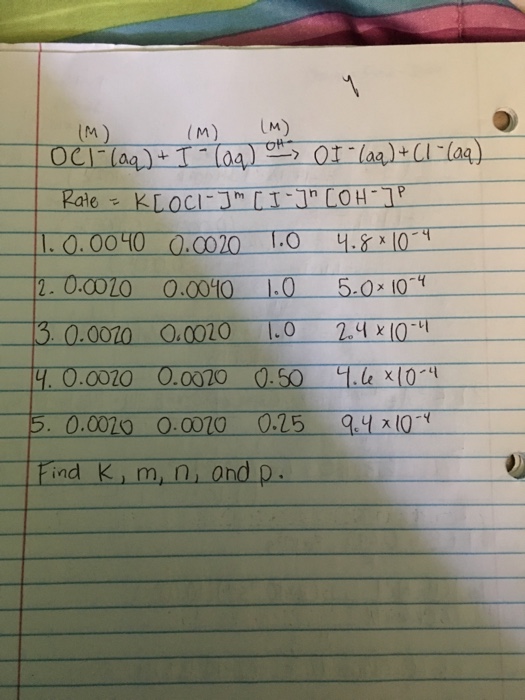 (M) (M) (M)
OCl⁻(aq) + I⁻(aq) OH⁻→ OI⁻(aq) + Cl⁻(aq)
Rate = K[OCl⁻]ᵐ [I⁻]ⁿ [OH⁻]ᵖ
1. 0.0040 0.0020 1.0 4.8 × 10⁻⁴
2. 0.0020 0.0040 1.0 5.0 × 10⁻⁴
3. 0.0020 0.0020 1.0 2.4 × 10⁻⁴
4. 0.0020 0.0020 0.50 4.6 × 10⁻⁴
5. 0.0020 0.0020 0.25 9.4 × 10⁻⁴
Find K, m, n, and p.